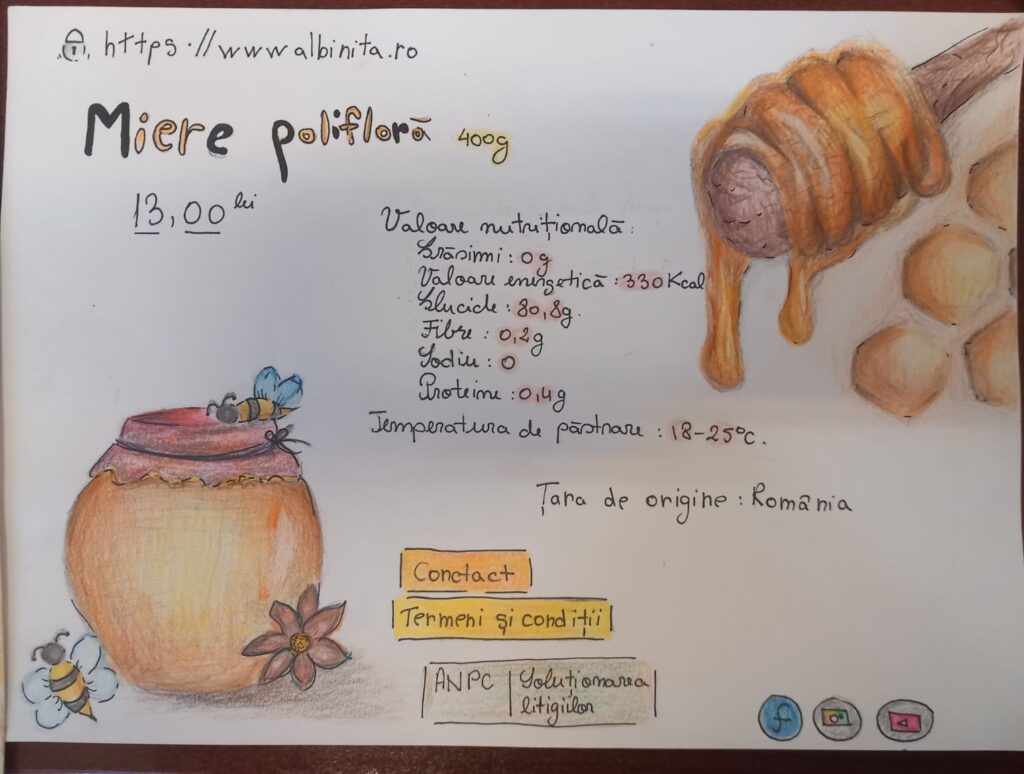 https://www.albinita.ro
Miere poliflora 400g
13,00 lei
Valoare nutrițională:
Grăsimi: 0g
Valoare energetică: 330Kcal
Glucide: 80,8g.
Fibre: 0,2g
Sodiu: 0
Proteine: 0,4g
Temperatura de păstrare: 18-25°C.
Țara de origine: România
Conctact
Termeni și condiții
ANPC Soluționarea
litigiilor
f